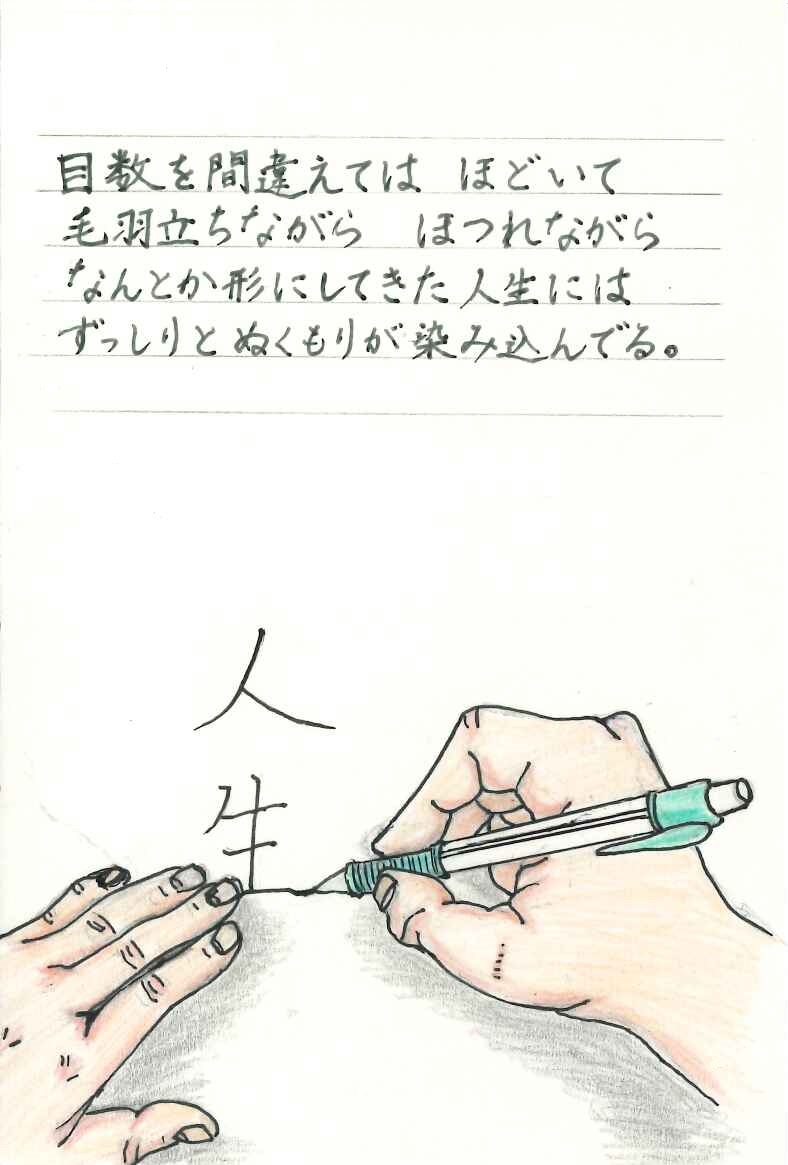 目数を間違えては　ほどいて
毛羽立ちながら　ほつれながら
なんとか形にしてきた人生には
ずっしりとぬくもりが染み込んでる。
人
生